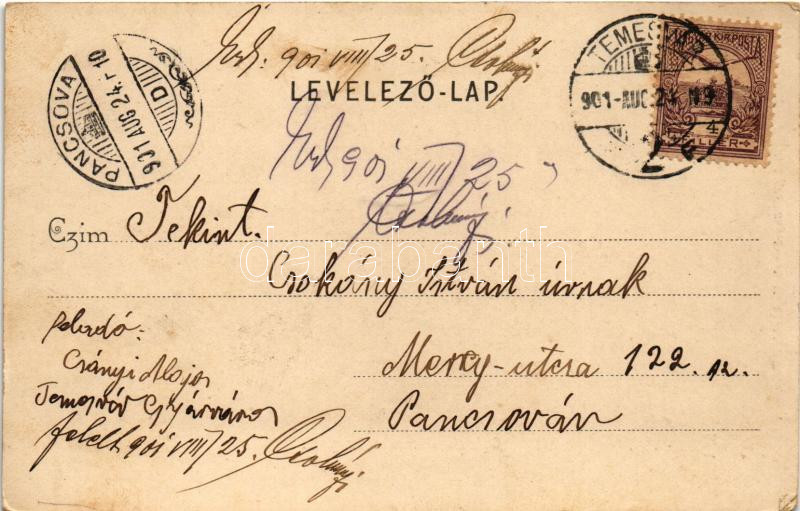 901 VIII/25.
LEVELEZŐ-LAP
PANCSOVA
901 AUG 24
TEMESVÁR
901-AUG.24
MAGYAR KIR. POSTA
4
FILLER
901 VIII/25
Czim Tekint.
Csokány István úrnak
Mercy-utcza 122. sz.
Pancsován
feladó:
Csányi Alajos
Temesvár Gyárváros
felelt 901 VIII/25.
darabanth